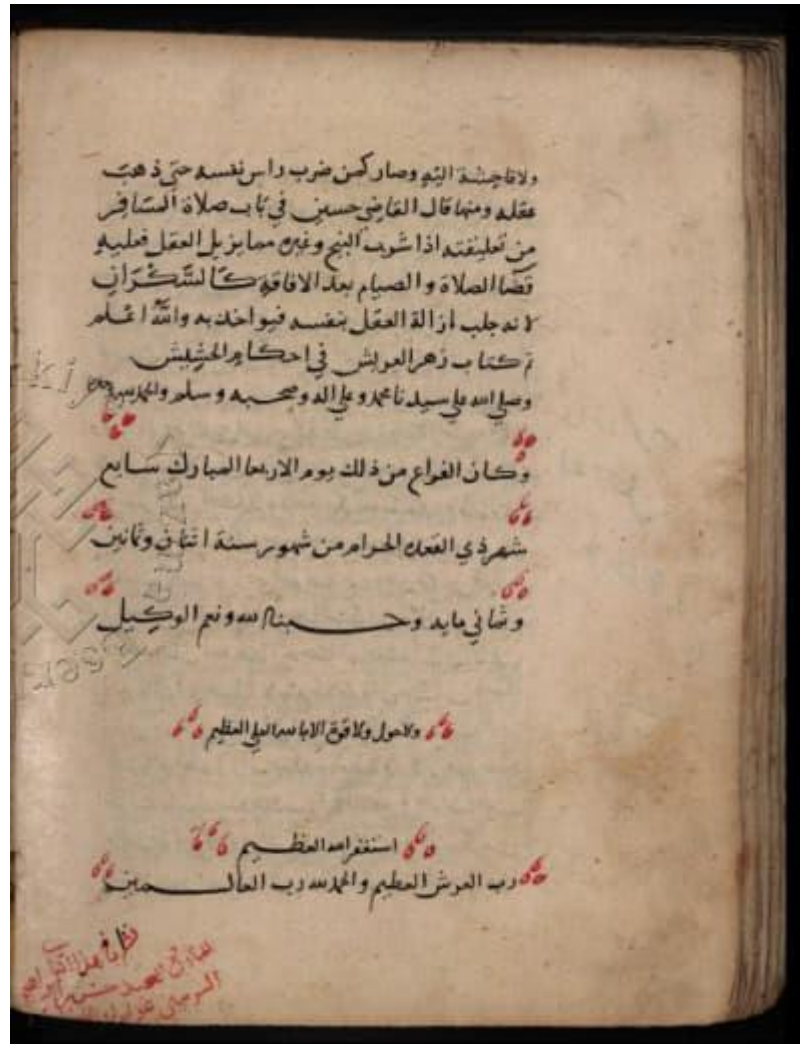 ولا حاجته اليه وصار كمن ضرب راس نفسه حتى ذهب
عقله ومنها قال القاضي حسين في باب صلاة المسافر
من تعليقته اذا شرب البنج وغيره مما يزيل العقل فعليه
قضا الصلاة والصيام بعد الافاقة كالسكران
لانه جلب ازالة العقل بنفسه فيواخذ به والله اعلم
تم كتاب زهر العريش في احكام الحشيش
وصلي الله علي سيدنا محمد وعلي اله وصحبه وسلم والحمد لله
وكان الفراغ من ذلك يوم الاربعا المبارك سابع
شهر ذي القعده الحرام من شهور سنة اثنان وثمانين
وثماني مايه وحسبنا الله ونعم الوكيل
ولا حول ولا قوة الا بالله العلي العظيم
استغفر الله العظيم
رب العرش العظيم والحمد لله رب العالمين
نظر في هذا الكتاب